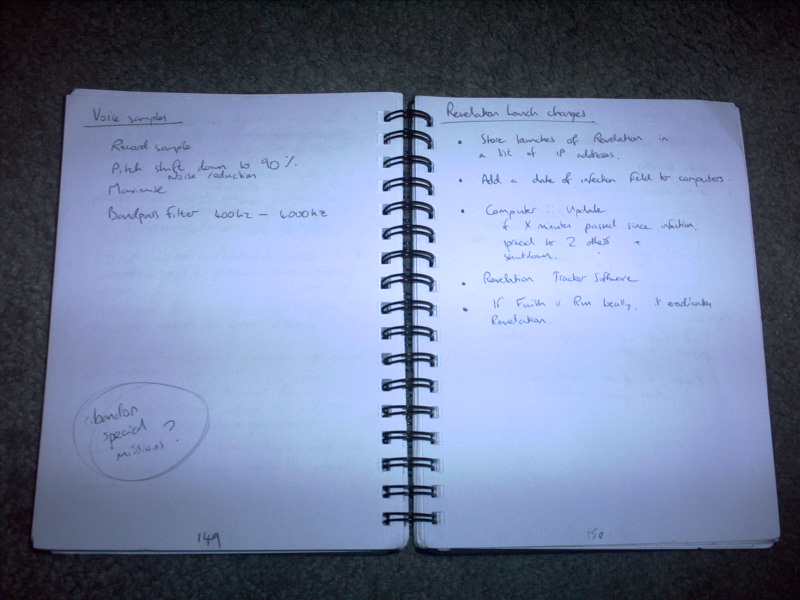 Voice samples
Record sample
Pitch shift down to 90%
Noise reduction
Maximise
Bandpass filter 400hz - 4000hz
abandon
special
missions?
149
Revelation Launch changes
• Store launches of Revelation in
a list of IP addresses.
• Add a date of infection field to computers
• Computer :: Update
if X minutes passed since infection,
spread to 2 others +
shutdown.
• Revelation Tracker Software
• If Faith is Run locally, it eradicates
Revelation.
150